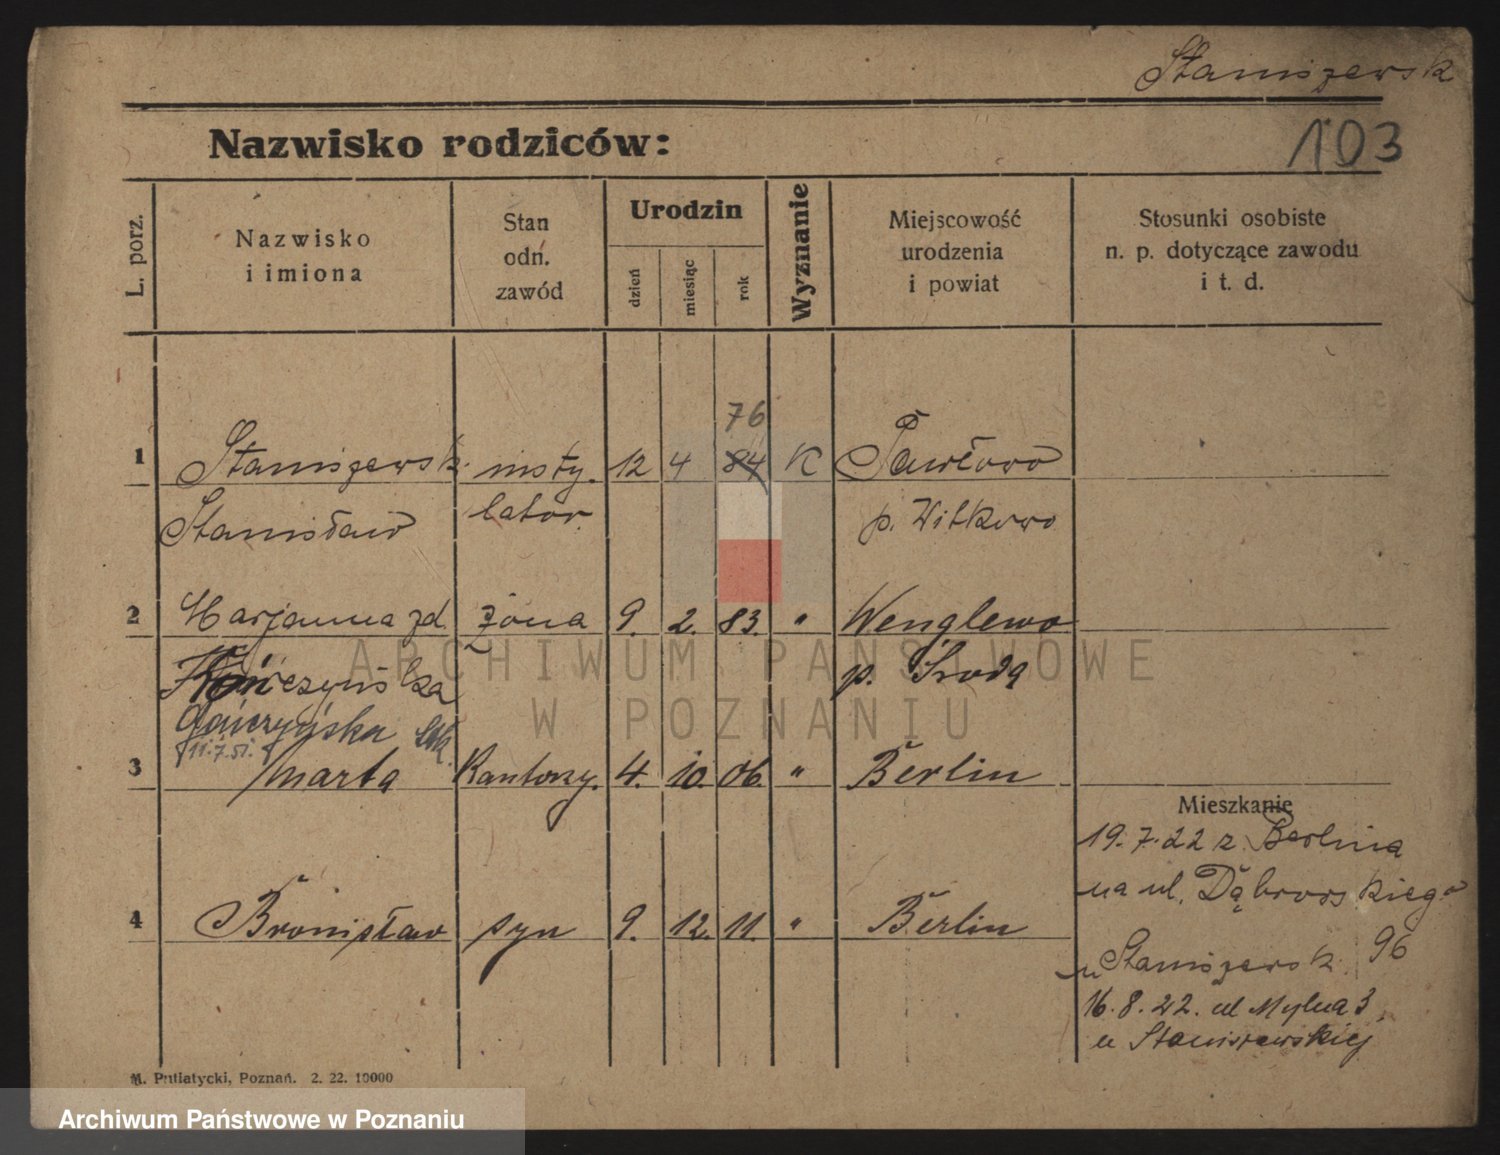 Staniszewsk
103
Nazwisko rodziców:
L. porz.
Nazwisko
i imiona
Stan
odn.
zawód
Urodzin
dzień
miesiąc
rok
Wyznanie
Miejscowość
urodzenia
i powiat
Stosunki osobiste
n. p. dotyczące zawodu
i t. d.
76
1 Staniszewsk. insty- 12 4 84 K Pawłowo
Stanisław lator p. Witkowo
2 Marjanna zd. żona 9. 2. 83. " Wenglewo
p. Środa
Gańczyńska
11.7.51.
3 Marta Kantorzy. 4. 10. 06. " Berlin
Mieszkanie
19.7.22 z Berlina
na ul. Dąbrowskiego
4 Bronisław syn 9. 12. 11. " Berlin
u Staniszewsk. 96
16.8.22. ul Mylna 3
u Staniszewskiej
M. Putiatycki, Poznań. 2. 22. 10000
ARCHIWUM PAŃSTWOWE
W POZNANIU
Archiwum Państwowe w Poznaniu